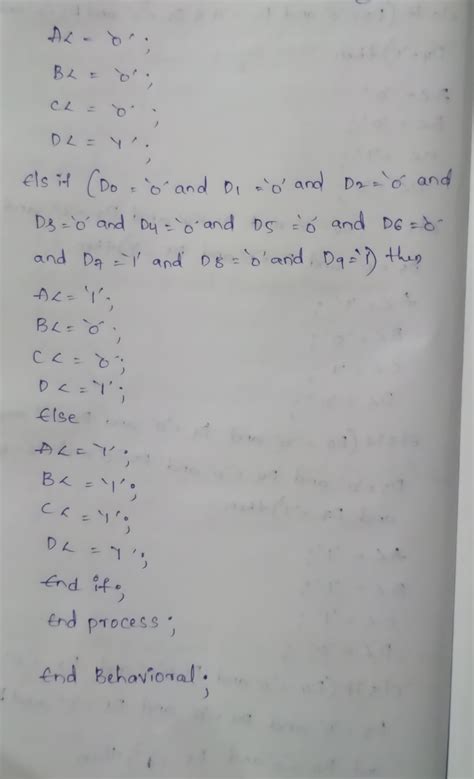 A< = '0';
B< = '0';
C< = '0';
D< = '1';
Elsif (D0 = '0' and D1 = '0' and D2 = '0' and
D3 = '0' and D4 = '0' and D5 = '0' and D6 = '0'
and D7 = '1' and D8 = '0' and D9 = '1') then
A< = '1';
B< = '0';
C < = '0';
D < = '1';
Else
A< = '1';
B< = '1';
C< = '1';
D< = '1';
End if;
End process;
End Behavioral;